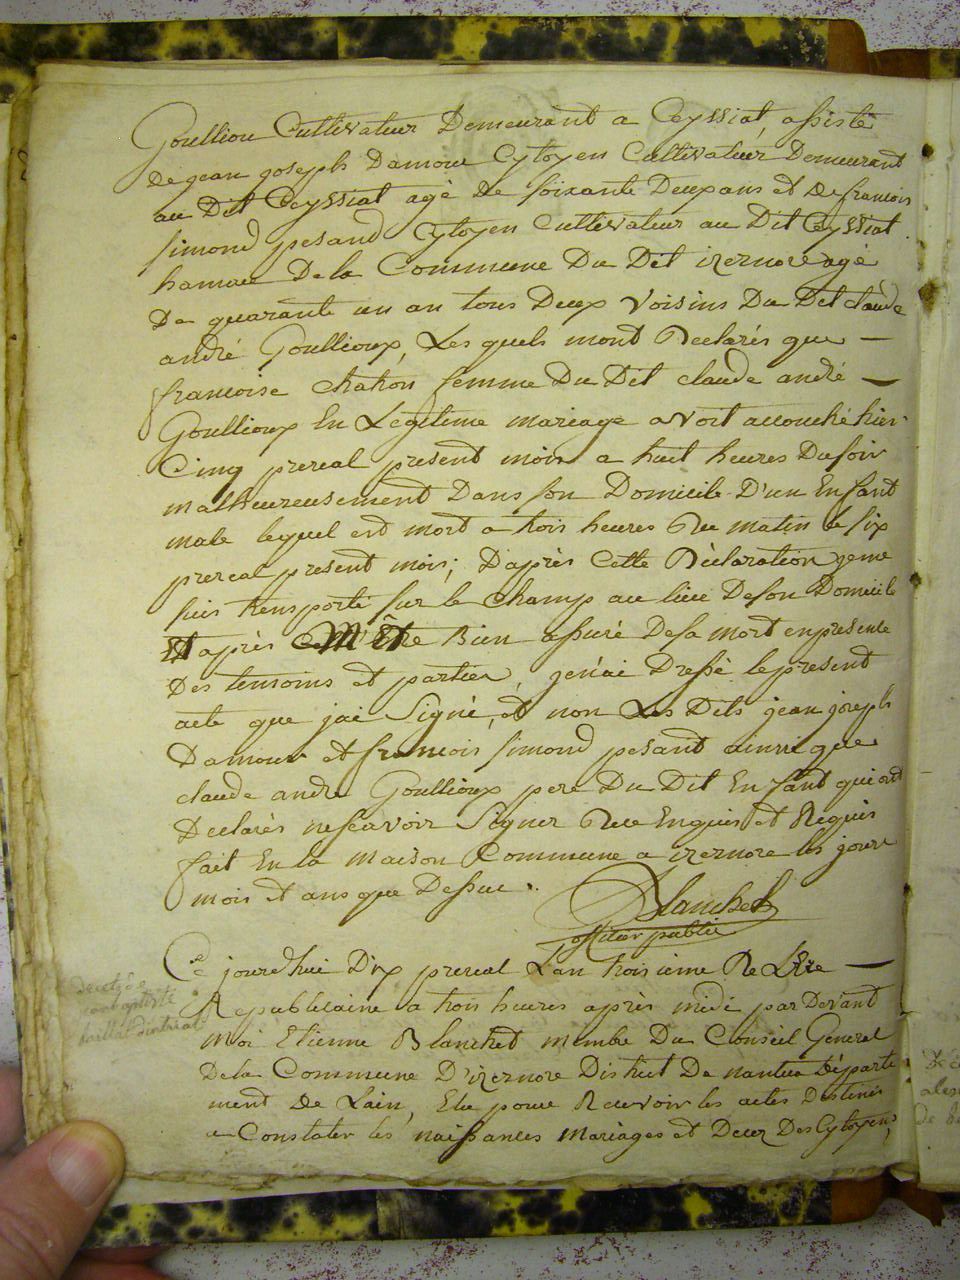 Goullion Cultivateur Demeurant a Ceyssiat, assisté
de jean joseph Damour Cytoyen Cultivateur Demeurant
au Dit Ceyssiat agé de soixante Deux ans et de francois
simond pesand Cytoyen Cultivateur au Dit Ceyssiat
hamau De la Commune Du Dit izernore agé
De quarante un an tous Deux Voisins Du Dit claude
andré Goullioux, Les quels mont Declarés que —
francoise chaton femme Du Dit claude andré —
Goullioux En Legitime mariage avoit accouché hier
Cinq prereal present mois a huit heures Dusoir
malheureusement Dans son Domicile D'un Enfant
male lequel est mort a trois heures Du matin le six
prereal present mois; D'après Cette Déclaration jeme
suis transporté sur le champ au lieu Deson Domicile
Et après M'Etre Bien assuré Desa mort enpresente
Des temoins et parties, jen'ai Dressé le present
acte que jai Signé, et non Les Dits jean joseph
Damour et francois simond pesant ainsi que
claude andre Goullioux pere Du Dit Enfant qui ont
Declarés nescavoir Signer De ce Enquis et Requis
fait En la maison Commune a izernore les jour
mois et ans que Dessus.
Blanchet
officier public
Ce jourdhui Dix prereal Lan troisieme De L'Ere —
Republicaine a trois heures après midi par Devant
Moi Etienne Blanchet membre Du Conseil General
Dela Commune D'izernore District De nantua Départe
ment de Lain, Elu pour Recevoir les actes Destinés
a Constater les naissances Mariages et Decez Des Cytoyens,
deces de
jean baptiste